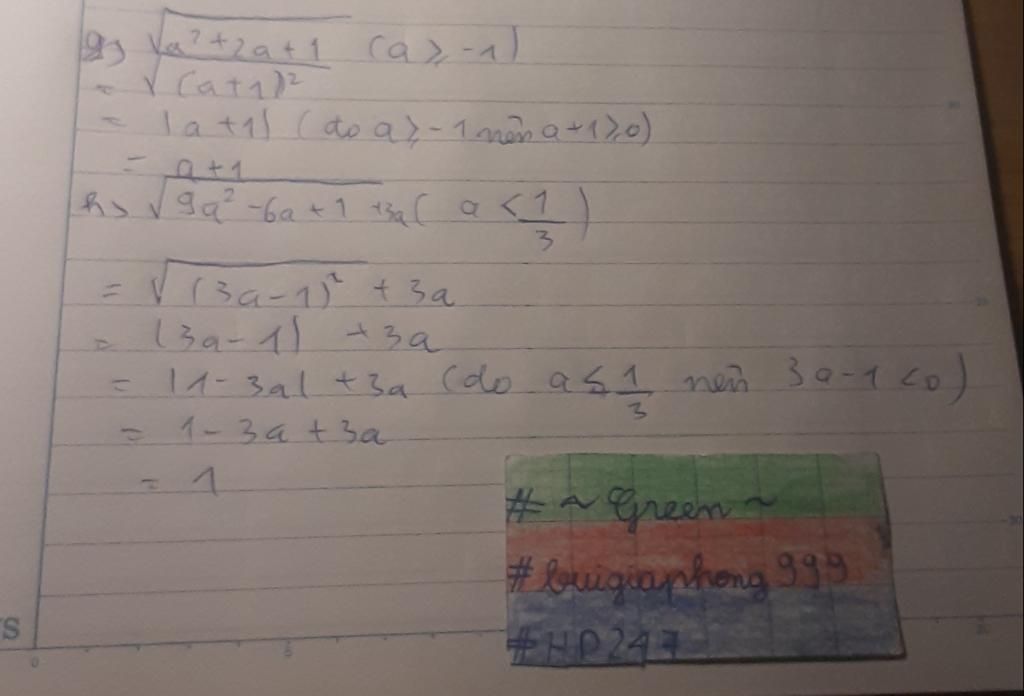 g) √a² + 2a + 1 (a ≥ -1)
= √(a+1)²
= |a+1| (do a ≥ -1 nên a+1 ≥ 0)
= a+1
h) √9a² - 6a + 1 + 3a ( a < 1/3 )
= √(3a-1)² + 3a
= |3a-1| + 3a
= |1-3a| + 3a (do a ≤ 1/3 nên 3a-1 < 0)
= 1 - 3a + 3a
= 1
# ~ Green ~
# buigiaphong999
# HD247
S
0 5